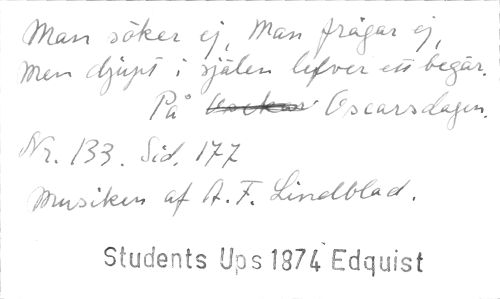 Man söker ej, Man frågar ej,
men djupt i själen lefver ett begär.
På Oscarsdagen.
Nr. 133. Sid. 177
Musiken af A. F. Lindblad.
Students Ups 1874 Edquist